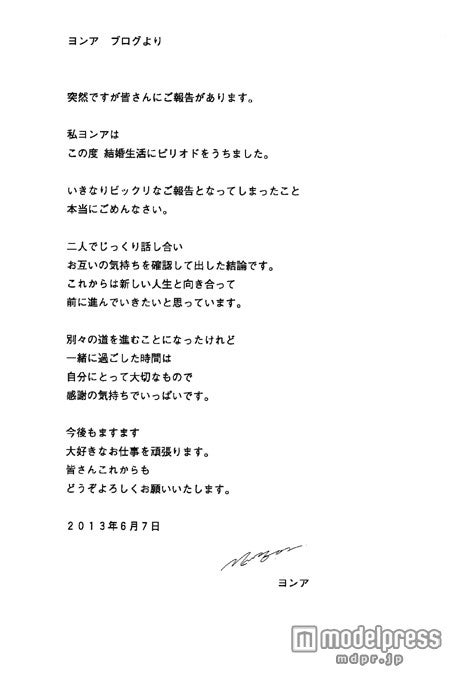 ヨンア　ブログより
突然ですが皆さんにご報告があります。
私ヨンアは
この度 結婚生活にピリオドをうちました。
いきなりビックリなご報告となってしまったこと
本当にごめんなさい。
二人でじっくり話し合い
お互いの気持ちを確認して出した結論です。
これからは新しい人生と向き合って
前に進んでいきたいと思っています。
別々の道を進むことになったけれど
一緒に過ごした時間は
自分にとって大切なもので
感謝の気持ちでいっぱいです。
今後もますます
大好きなお仕事を頑張ります。
皆さんこれからも
どうぞよろしくお願いいたします。
２０１３年６月７日
ヨンア
modelpress
mdpr.jp